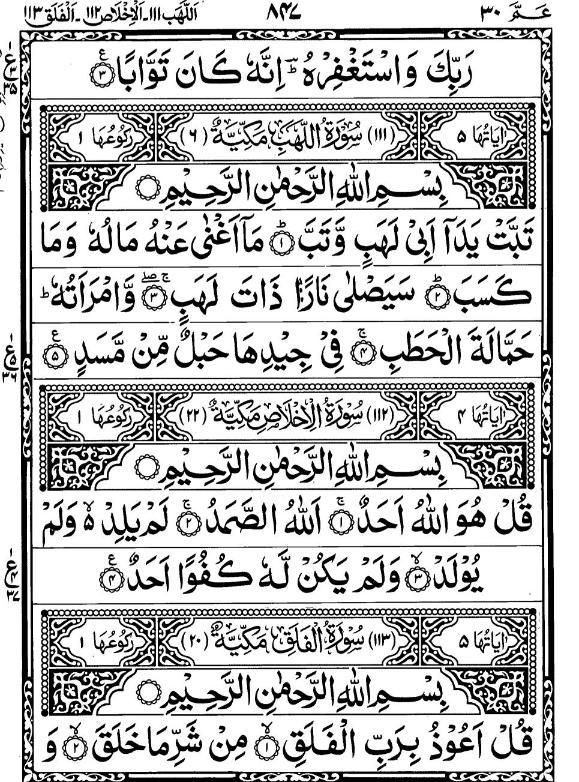 عَمَّ ٣٠ ٨٤٧ اَللَّهَب ١١١ ۔ اَلْاِخْلَاص ١١٢ ۔ اَلْفَلَق ١١٣
رَبِّكَ وَاسْتَغْفِرْهُ ؕ اِنَّهٗ كَانَ تَوَّابًا ﴿٣﴾
اٰيَاتُهَا ٥ (١١١) سُوْرَةُ اللَّهَبِ مَكِّيَّةٌ (٦) رُكُوْعُهَا ١
بِسْمِ اللّٰهِ الرَّحْمٰنِ الرَّحِيْمِ
تَبَّتْ يَدَاۤ اَبِيْ لَهَبٍ وَّتَبَّ ﴿١﴾ مَاۤ اَغْنٰى عَنْهُ مَالُهٗ وَمَا
كَسَبَ ﴿٢﴾ سَيَصْلٰى نَارًا ذَاتَ لَهَبٍ ﴿٣﴾ وَّامْرَاَتُهٗ ؕ
حَمَّالَةَ الْحَطَبِ ﴿٤﴾ فِيْ جِيْدِهَا حَبْلٌ مِّنْ مَّسَدٍ ﴿٥﴾
اٰيَاتُهَا ٤ (١١٢) سُوْرَةُ الْاِخْلَاصِ مَكِّيَّةٌ (٢٢) رُكُوْعُهَا ١
بِسْمِ اللّٰهِ الرَّحْمٰنِ الرَّحِيْمِ
قُلْ هُوَ اللّٰهُ اَحَدٌ ﴿١﴾ اَللّٰهُ الصَّمَدُ ﴿٢﴾ لَمْ يَلِدْ ۙ وَلَمْ
يُوْلَدْ ﴿٣﴾ وَلَمْ يَكُنْ لَّهٗ كُفُوًا اَحَدٌ ﴿٤﴾
اٰيَاتُهَا ٥ (١١٣) سُوْرَةُ الْفَلَقِ مَكِّيَّةٌ (٢٠) رُكُوْعُهَا ١
بِسْمِ اللّٰهِ الرَّحْمٰنِ الرَّحِيْمِ
قُلْ اَعُوْذُ بِرَبِّ الْفَلَقِ ﴿١﴾ مِنْ شَرِّ مَا خَلَقَ ﴿٢﴾ وَ